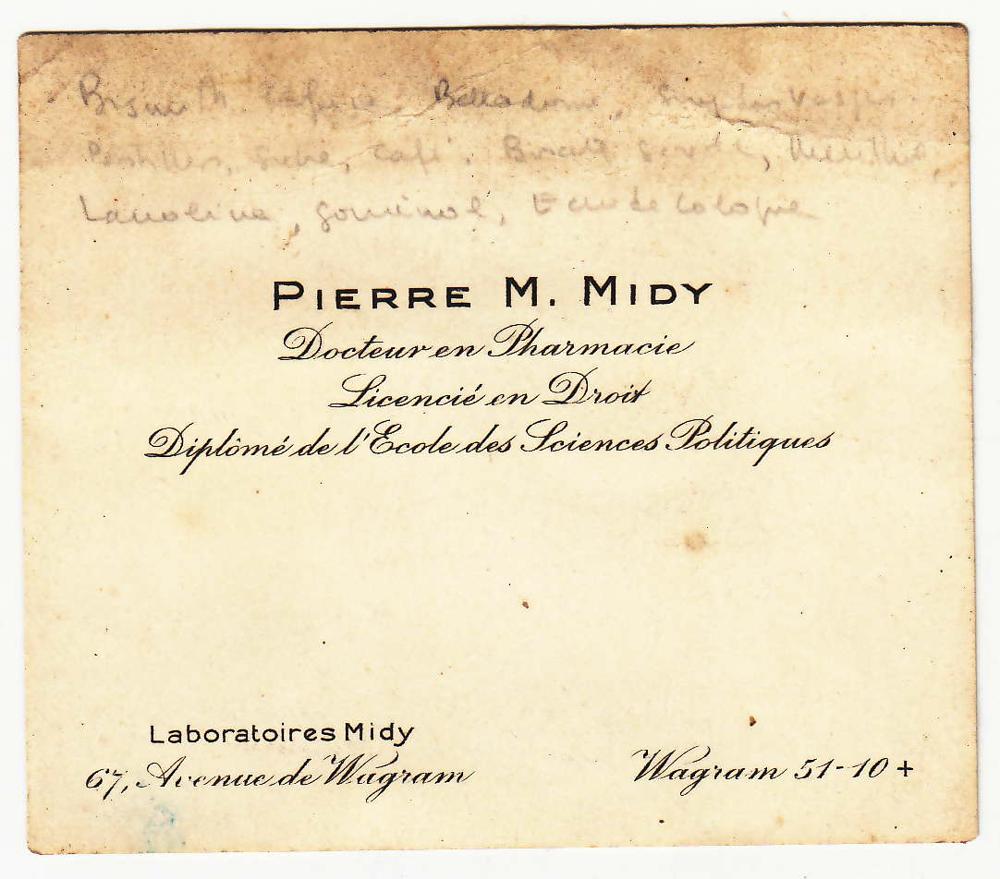 Bismuth, Belladone,
Pastilles, sucre, café,
Lanoline, goménol, Eau de Cologne
PIERRE M. MIDY
Docteur en Pharmacie
Licencié en Droit
Diplômé de l'Ecole des Sciences Politiques
Laboratoires Midy
67, Avenue de Wagram
Wagram 51-10 +